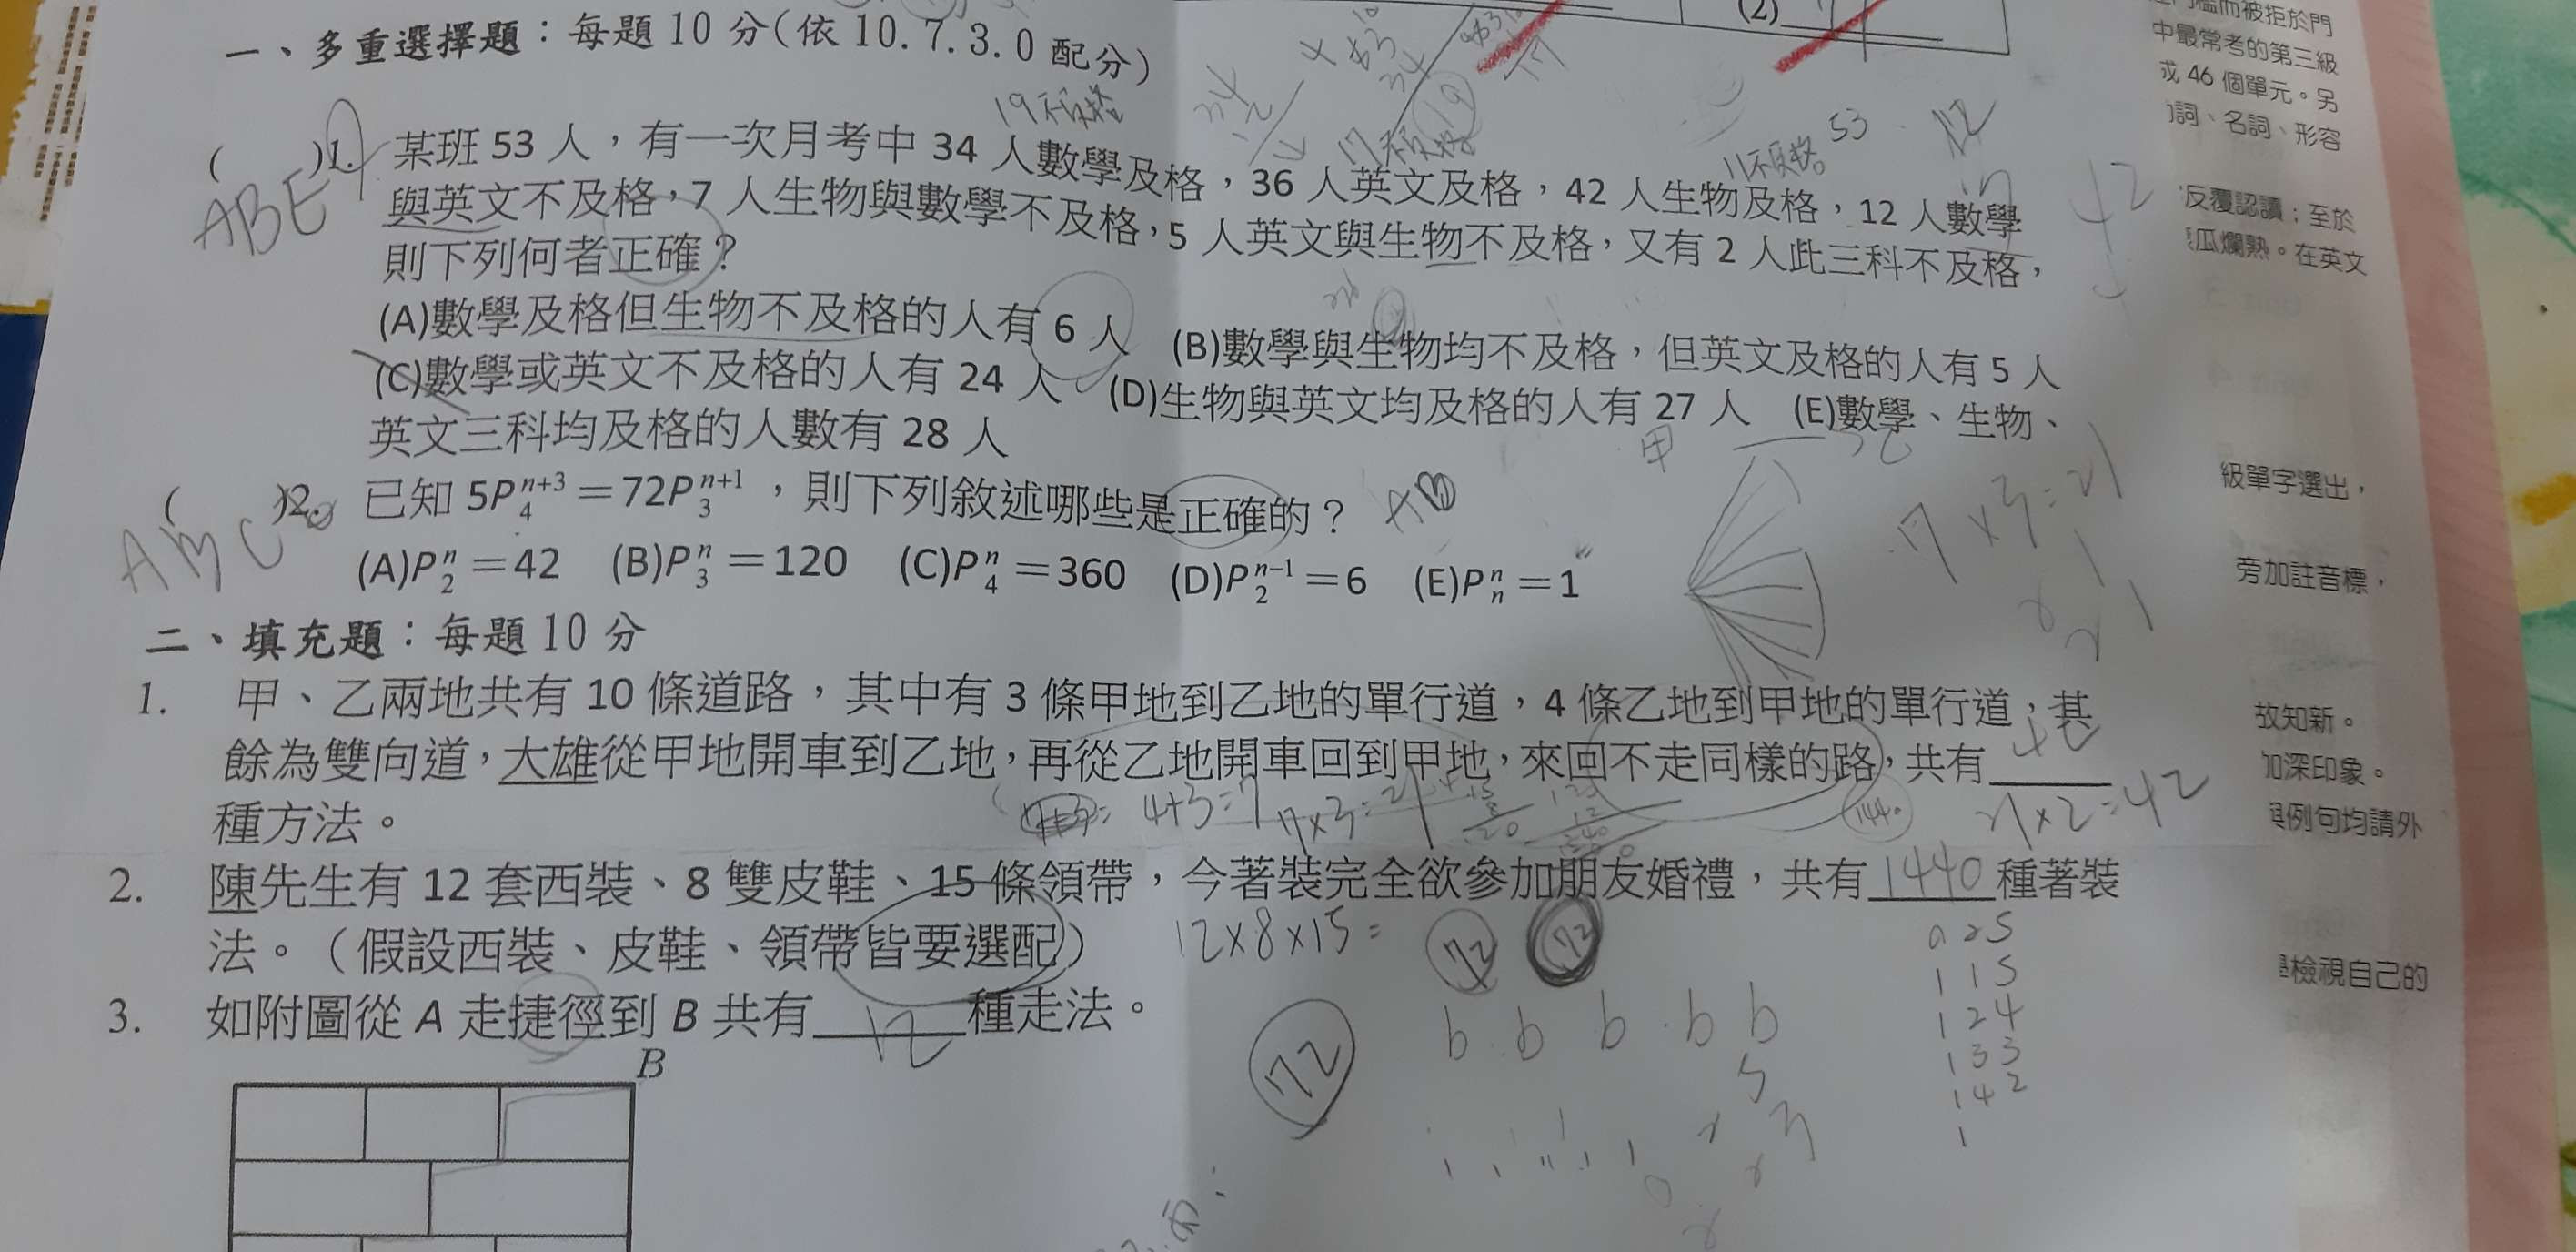 一、多重選擇題：每題10分(依10.7.3.0配分)
(2)
19不及格
17不及格
11不及格
53
12
ABE
( )1. 某班 53 人，有一次月考中 34 人數學及格，36 人英文及格，42 人生物及格，12 人數學
與英文不及格，7 人生物與數學不及格，5 人英文與生物不及格，又有 2 人此三科不及格，
則下列何者正確？
(A)數學及格但生物不及格的人有 6 人 (B)數學與生物均不及格，但英文及格的人有 5 人
(C)數學或英文不及格的人有 24 人 (D)生物與英文均及格的人有 27 人 (E)數學、生物、
英文三科均及格的人數有 28 人
42
甲 乙
ABC
( )2. 已知 5P₄ⁿ⁺³＝72P₃ⁿ⁺¹，則下列敘述哪些是正確的？
(A)P₂ⁿ＝42 (B)P₃ⁿ＝120 (C)P₄ⁿ＝360 (D)P₂ⁿ⁻¹＝6 (E)Pₙⁿ＝1
7×3=21
二、填充題：每題10分
1. 甲、乙兩地共有 10 條道路，其中有 3 條甲地到乙地的單行道，4 條乙地到甲地的單行道，其
餘為雙向道，大雄從甲地開車到乙地，再從乙地開車回到甲地，來回不走同樣的路，共有
種方法。
4+3=7 7×3=21
×2=42
2. 陳先生有 12 套西裝、8 雙皮鞋、15 條領帶，今著裝完全欲參加朋友婚禮，共有1440種著裝
法。（假設西裝、皮鞋、領帶皆要選配）
12×8×15=
72
72
3. 如附圖從 A 走捷徑到 B 共有 12 種走法。
72
b b b b b
115
124
133
142
1
B
中最常考的第三級
或 46 個單元。另
詞、名詞、形容
反覆認讀；至於
瓜爛熟。在英文
級單字選出，
旁加註音標，
故知新。
加深印象。
與例句均請外
檢視自己的